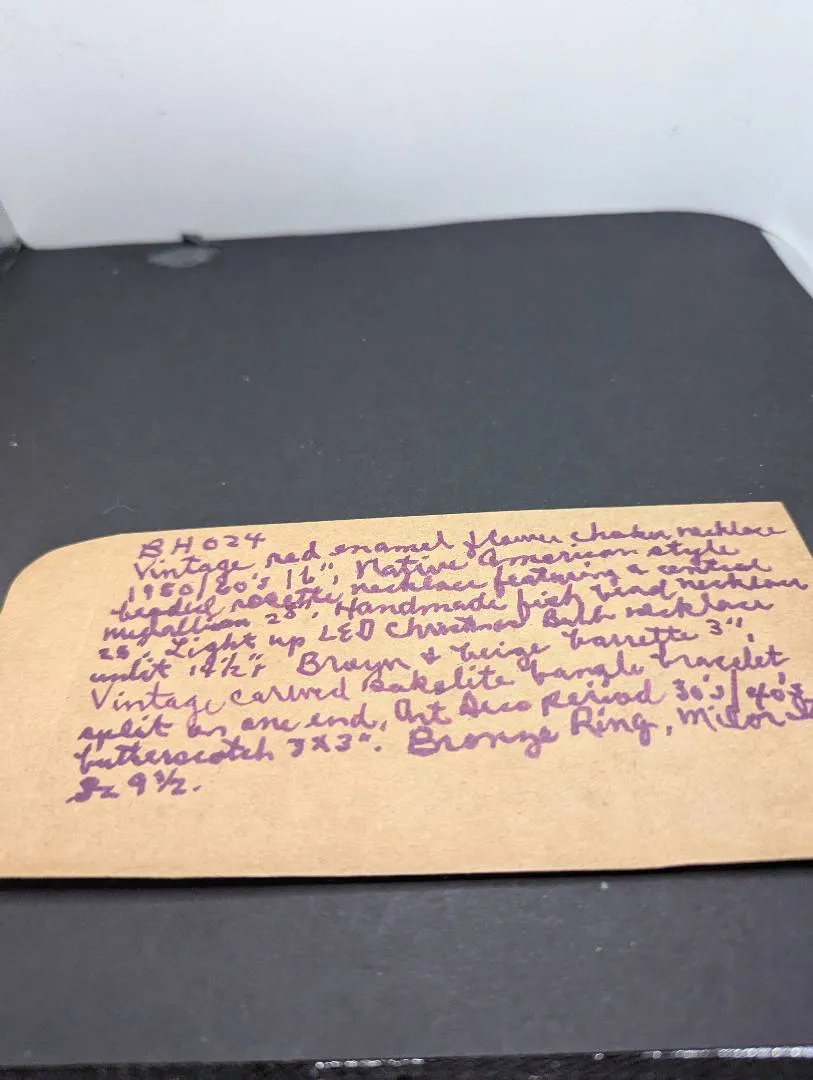 BH024
Vintage red enamel flower choker necklace
1950/60's 16", Native American style
beaded rosette necklace featuring a central
medallion 28", Handmade fish bead necklace
25", Light up LED Christmas Bulb necklace
unlit 14½", Brown & beige barrette 3",
Vintage carved bakelite bangle bracelet,
split on one end, Art Deco period 30's/40's
butterscotch 3x3". Bronze Ring,
Sz 9½.